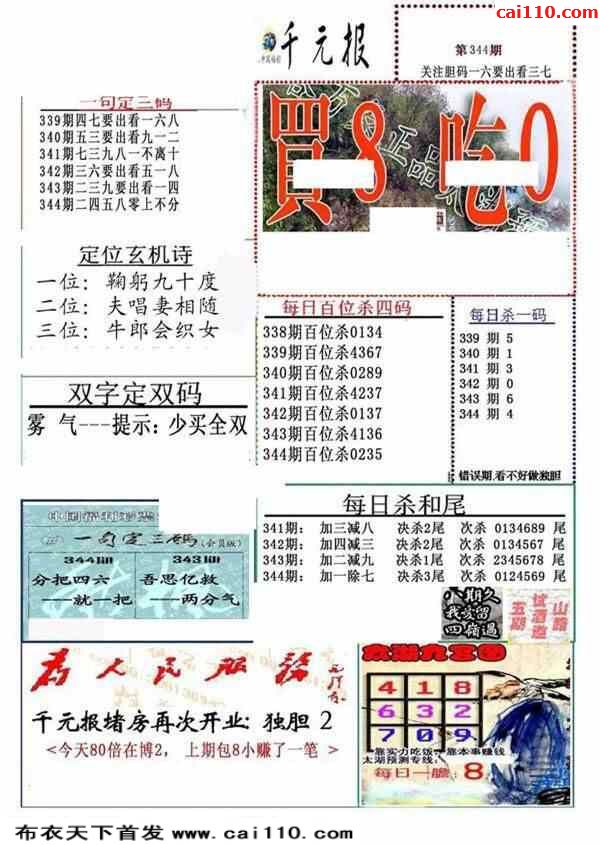 cai110.com
千元报
第344期
关注胆码一六要出看三七
一句定三码
339期四七要出看一六八
340期五三要出看九一二
341期七三九八一不离十
342期三六要出看五一八
343期二三九要出看一四
344期二四五八零上不分
買8吃0
定位玄机诗
一位：鞠躬九十度
二位：夫唱妻相随
三位：牛郎会织女
每日百位杀四码
338期百位杀0134
339期百位杀4367
340期百位杀0289
341期百位杀4237
342期百位杀0137
343期百位杀4136
344期百位杀0235
每日杀一码
339 期 5
340 期 1
341 期 3
342 期 0
343 期 6
344 期 4
错误期,看不好做独胆
双字定双码
雾 气---提示：少买全双
每日杀和尾
341期： 加三减八 决杀2尾 次杀 0134689 尾
342期： 加四减三 决杀2尾 次杀 0134567 尾
343期： 加二减九 决杀1尾 次杀 2345678 尾
344期： 加一除七 决杀3尾 次杀 0124569 尾
一句定三码(会员版)
344期
分把四六
——就一把
343期
吾思亿救
——两分气
八期久
我爱留
四岭过
山路
试酒边
五期
为人民服务
千元报堵房再次开业：独胆 2
<今天80倍在博2， 上期包8小赚了一笔 >
太湖九宫图
4 1 8
6 3 2
7 0 9
靠实力吃饭，靠本事赚钱
太湖预测专线:
每日一胆: 8
布衣天下首发 www.cai110.com